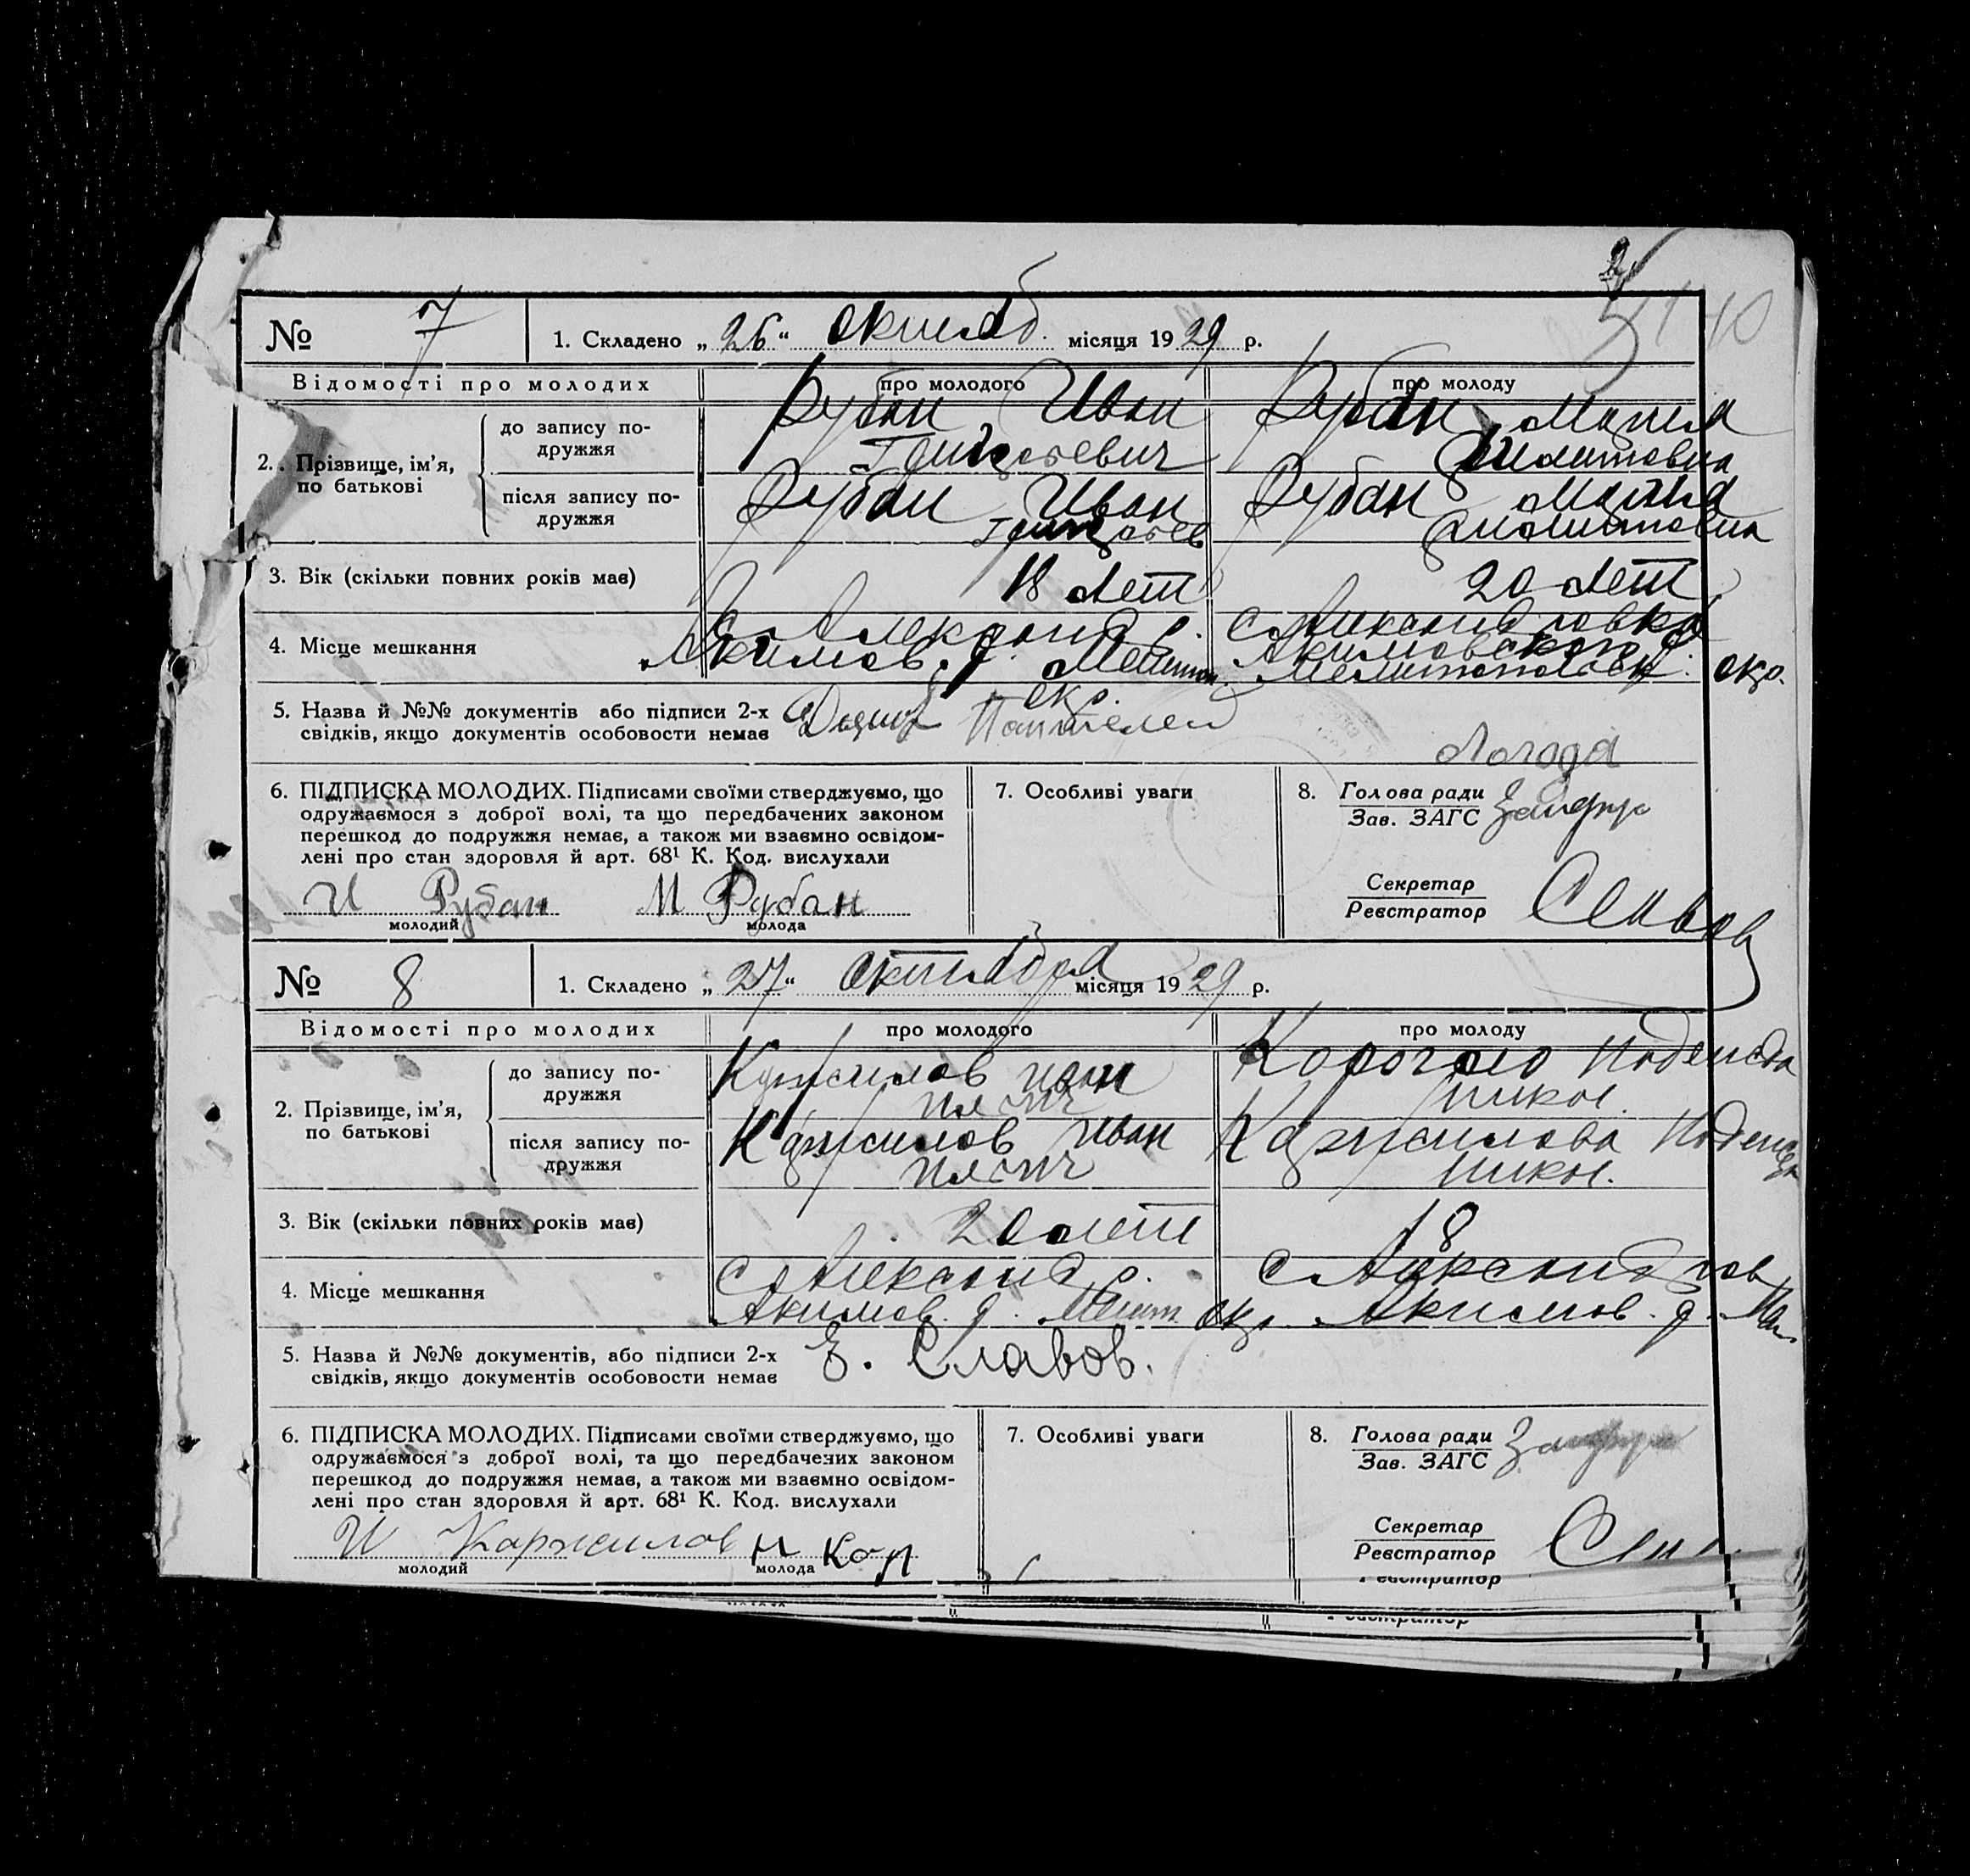 № 7 1. Складено „26“ октяб. місяця 1929 р.
Відомості про молодих про молодого про молоду
2. Прізвище, ім'я, по батькові
до запису подружжя
Рубан Иван
Григорьевич
Рубан Мария
Филитовна
після запису подружжя
Рубан Иван
Григорьев
Рубан Мария
Филитовна
3. Вік (скільки повних років має) 18 лет 20 лет
4. Місце мешкання
с Александр.
Акимов. р. Мелит.
окр.
с Александровка
Акимовского р.
Мелитопольск. окр.
5. Назва й №№ документів або підписи 2-х
свідків, якщо документів особовости немає
Пантелей
Логода
6. ПІДПИСКА МОЛОДИХ. Підписами своїми стверджуємо, що
одружаємося з доброї волі, та що передбачених законом
перешкод до подружжя немає, а також ми взаємно освідом-
лені про стан здоровля й арт. 68¹ К. Код. вислухали
И Рубан М Рубан
молодий молода
7. Особливі уваги
8. Голова ради
Зав. ЗАГС
Секретар
Реєстратор
№ 8 1. Складено „27“ октября місяця 1929 р.
Відомості про молодих про молодого про молоду
2. Прізвище, ім'я, по батькові
до запису подружжя
Каржилов Иван
Ильич
Корогло Надежда
Никол.
після запису подружжя
Каржилов Иван
Ильич
Каржилова Надежда
Никол.
3. Вік (скільки повних років має) 20 лет 18
4. Місце мешкання
с Александр.
Акимов. р. Мелит. окр.
с Александров
Акимов. р.
5. Назва й №№ документів, або підписи 2-х
свідків, якщо документів особовости немає
Е. Славов.
6. ПІДПИСКА МОЛОДИХ. Підписами своїми стверджуємо, що
одружаємося з доброї волі, та що передбачених законом
перешкод до подружжя немає, а також ми взаємно освідом-
лені про стан здоровля й арт. 68¹ К. Код. вислухали
И Каржилов Н Кор
молодий молода
7. Особливі уваги
8. Голова ради
Зав. ЗАГС
Секретар
Реєстратор
Реєстратор
Реєстратор